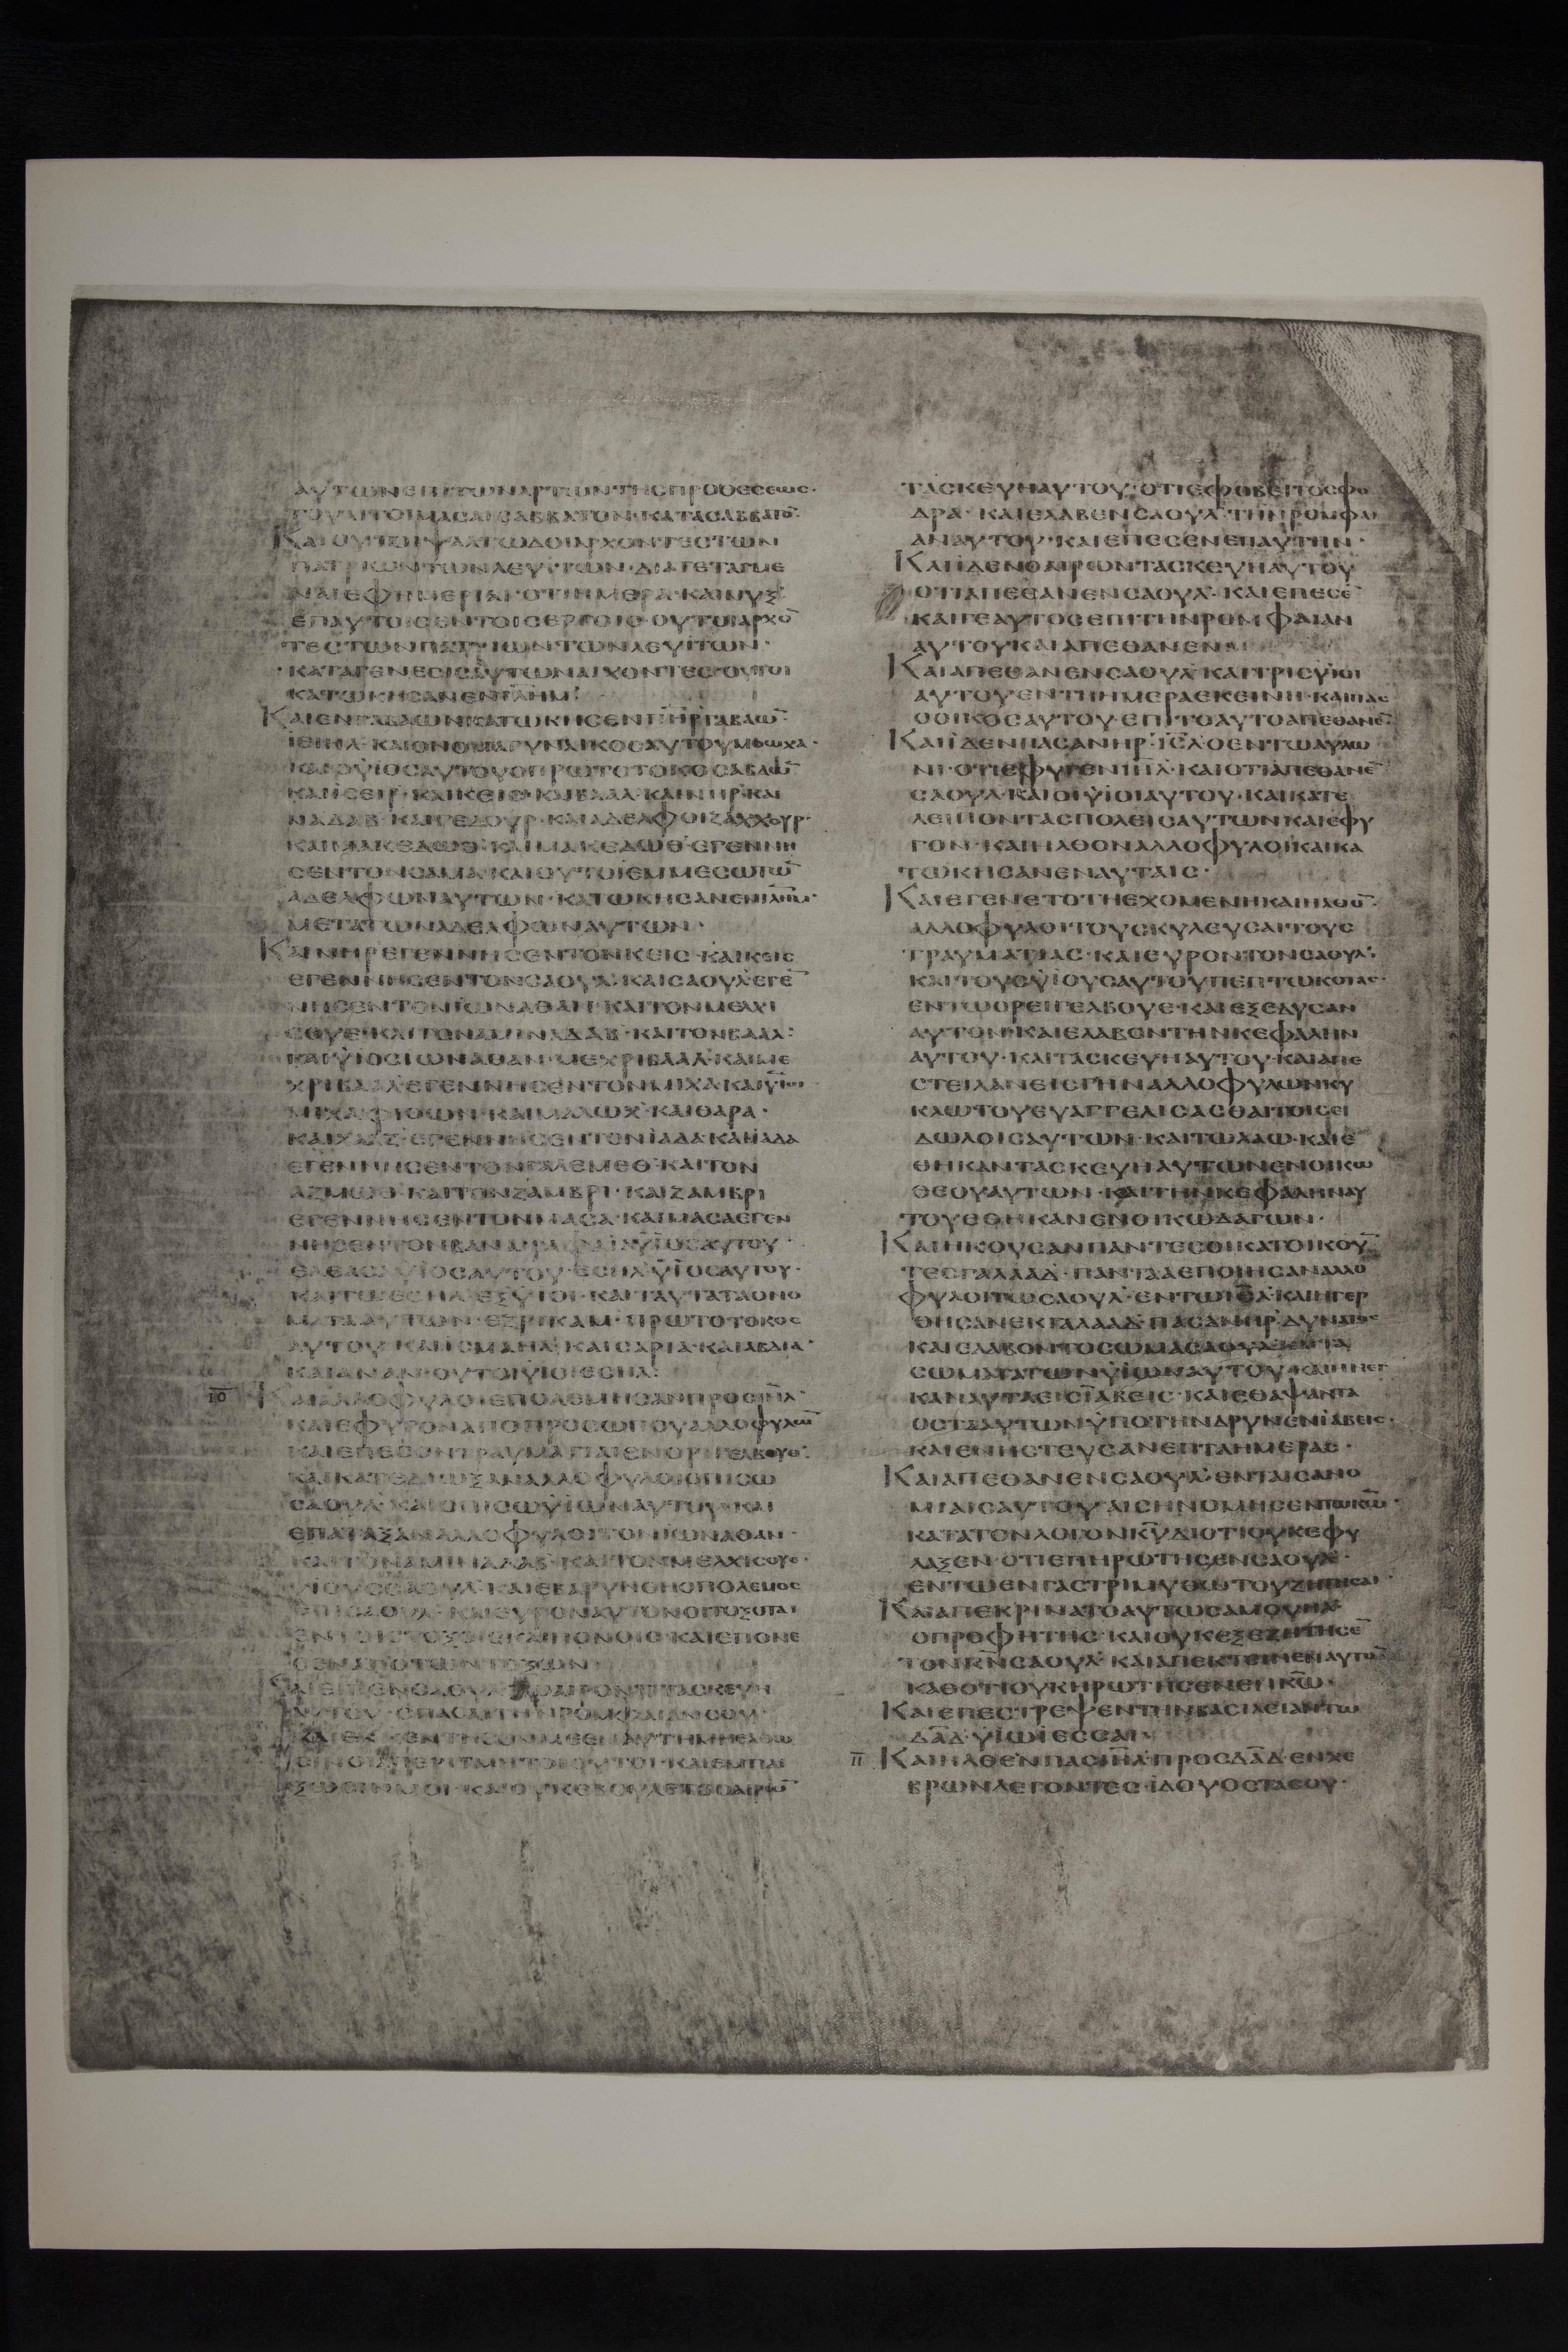 ΑΥΤΩΝΕΠΙΤΩΝΑΡΤΩΝΤΗΣΠΡΟΘΕΣΕΩΣ·
ΤΟΥΑΙΤΟΙΜΑΣΑΙΣΑΒΒΑΤΟΝ·ΚΑΤΑΣΑΒΒΑΤΟ̅
ΚΑΙΟΥΤΟΙΨΑΛΤΩΔΟΙΑΡΧΟΝΤΕΣΤΩΝ
ΠΑΤΡΙΩΝΤΩΝΛΕΥΙΤΩΝ·ΔΙΑΤΕΤΑΓΜΕ
ΝΑΙΕΦΗΜΕΡΙΑΙ·ΟΤΙΗΜΕΡΑ·ΚΑΙΝΥΞ
ΕΠΑΥΤΟΙΣΕΝΤΟΙΣΕΡΓΟΙΣ·ΟΥΤΟΙΑΡΧΟ̅
ΤΕΣΤΩΝΠΑΤΡΙΩΝΤΩΝΛΕΥΙΤΩΝ·
ΚΑΤΑΓΕΝΕΣΙΣΑΥΤΩΝΑΡΧΟΝΤΕΣ·ΟΥΤΟΙ
ΚΑΤΩΚΗΣΑΝΕΝΙΛΗΜ·
ΚΑΙΕΝΓΑΒΑΩΝΚΑΤΩΚΗΣΕΝΠΗΡΓΑΒΑΩ̅
ΙΕΙΗΛ·ΚΑΙΟΝΟΜΑΓΥΝΑΙΚΟΣΑΥΤΟΥΜΟΩΧΑ·
ΚΑΙΟΥΙΟΣΑΥΤΟΥΟΠΡΩΤΟΤΟΚΟΣΑΒΑΔΩ̅
ΚΑΙΣΕΙΡ·ΚΑΙΚΕΙΣ·ΚΑΙΒΑΑΛ·ΚΑΙΝΗΡ·ΚΑΙ
ΝΑΔΑΒ·ΚΑΙΓΕΔΟΥΡ·ΚΑΙΑΔΕΛΦΟΙΖΑΧΧΟΥΡ·
ΚΑΙΜΑΚΕΔΩΘ·ΚΑΙΜΑΚΕΔΩΘ·ΕΓΕΝΝΗ
ΣΕΝΤΟΝΣΑΜΑ·ΚΑΙΟΥΤΟΙΕΜΜΕΣΩΤΩ̅
ΑΔΕΛΦΩΝΑΥΤΩΝ·ΚΑΤΩΚΗΣΑΝΕΝΙΛΗΜ·
ΜΕΤΑΤΩΝΑΔΕΛΦΩΝΑΥΤΩΝ·
ΚΑΙΝΗΡΕΓΕΝΝΗΣΕΝΤΟΝΚΕΙΣ·ΚΑΙΚΕΙΣ
ΕΓΕΝΝΗΣΕΝΤΟΝΣΑΟΥΛ·ΚΑΙΣΑΟΥΛΕΓΕ̅
ΝΗΣΕΝΤΟΝΙΩΝΑΘΑΝ·ΚΑΙΤΟΝΜΕΛΧΙ
ΣΟΥΕ·ΚΑΙΤΟΝΑΜΙΝΑΔΑΒ·ΚΑΙΤΟΝΒΑΑΛ:
ΚΑΙΥΙΟΣΙΩΝΑΘΑΝ·ΜΕΧΡΙΒΑΑΛ·ΚΑΙΜΕ
ΧΡΙΒΑΑΛΕΓΕΝΝΗΣΕΝΤΟΝΜΙΧΑ·ΚΑΙΥΙΟΙ
ΜΙΧΑΦΙΘΩΝ·ΚΑΙΜΑΛΩΧ·ΚΑΙΘΑΡΑ·
ΚΑΙΧΑΑΖ·ΕΓΕΝΝΗΣΕΝΤΟΝΙΑΔΑ·ΚΑΙΙΑΔΑ
ΕΓΕΝΝΗΣΕΝΤΟΝΓΑΛΕΜΕΘ·ΚΑΙΤΟΝ
ΑΖΜΩΘ·ΚΑΙΤΟΝΖΑΜΒΡΙ·ΚΑΙΖΑΜΒΡΙ
ΕΓΕΝΝΗΣΕΝΤΟΝΜΑΣΑ·ΚΑΙΜΑΣΑΕΓΕΝ
ΝΗΣΕΝΤΟΝΒΑΝΑ ΥΙΟΣΑΥΤΟΥ·
ΕΛΕΑΣΑΥΙΟΣΑΥΤΟΥ·ΕΣΗΛΥΙΟΣΑΥΤΟΥ·
ΚΑΙΤΩΕΣΗΛ·ΕΞΥΙΟΙ·ΚΑΙΤΑΥΤΑΤΑΟΝΟ
ΜΑΤΑΑΥΤΩΝ·ΕΖΡΙΚΑΜ·ΠΡΩΤΟΤΟΚΟΣ
ΑΥΤΟΥ·ΚΑΙΙΣΜΑΗΛ·ΚΑΙΣΑΡΙΑ·ΚΑΙΑΒΔΙΑ·
ΚΑΙΑΝΑΝ·ΟΥΤΟΙΥΙΟΙΕΣΗΛ:
ΙΟ ΚΑΙΑΛΛΟΦΥΛΟΙΕΠΟΛΕΜΗΣΑΝΠΡΟΣΙΗΛ·
ΚΑΙΕΦΥΓΟΝΑΠΟΠΡΟΣΩΠΟΥΑΛΛΟΦΥΛΩ̅
ΚΑΙΕΠΕΣΟΝΤΡΑΥΜΑΤΙΑΙΕΝΟΡΕΙΓΕΛΒΟΥΕ:
ΚΑΙΚΑΤΕΔΙΩΞΑΝΑΛΛΟΦΥΛΟΙΟΠΙΣΩ
ΣΑΟΥΛ·ΚΑΙΟΠΙΣΩΥΙΩΝΑΥΤΟΥ·ΚΑΙ
ΕΠΑΤΑΞΑΝΑΛΛΟΦΥΛΟΙΤΟΝΙΩΝΑΘΑΝ·
ΚΑΙΤΟΝΑΜΙΝΑΔΑΒ·ΚΑΙΤΟΝΜΕΛΧΙΣΟΥΕ·
ΥΙΟΥΣΣΑΟΥΛ·ΚΑΙΕΒΑΡΥΝΘΗΟΠΟΛΕΜΟΣ
ΕΠΙΣΑΟΥΛ·ΚΑΙΕΥΡΟΝΑΥΤΟΝΟΙΤΟΞΟΤΑΙ
ΕΝΤΟΙΣΤΟΞΟΙΣΚΑΙΠΟΝΟΙΣ·ΚΑΙΕΠΟΝΕ
ΣΕΝΑΠΟΤΩΝΤΟΞΩΝ·
ΚΑΙΕΙΠΕΝΣΑΟΥΛ ΑΙΡΟΝΤΙΤΑΣΚΕΥΗ
ΑΥΤΟΥ·ΣΠΑΣΑΙΤΗΝΡΟΜΦΑΙΑΝΣΟΥ·
ΚΑΙΕΚ ΕΝΤΗΣΟΝΜΕΕΝΑΥΤΗΜΗΕΛΘΩ
ΣΙΝΟΙΑΠΕΡΙΤΜΗΤΟΙΟΥΤΟΙ·ΚΑΙΕΜΠΑΙ
ΞΩΣΙΝΜΟΙ·ΚΑΙΟΥΚΕΒΟΥΛΕΤΟΟΑΙΡΩ̅
ΤΑΣΚΕΥΗΑΥΤΟΥ·ΟΤΙΕΦΟΒΕΙΤΟΣΦΟ
ΔΡΑ·ΚΑΙΕΛΑΒΕΝΣΑΟΥΛ·ΤΗΝΡΟΜΦΑΙ
ΑΝΑΥΤΟΥ·ΚΑΙΕΠΕΣΕΝΕΠΑΥΤΗΝ·
ΚΑΙΙΔΕΝΟΑΙΡΩΝΤΑΣΚΕΥΗΑΥΤΟΥ
ΟΤΙΑΠΕΘΑΝΕΝΣΑΟΥΛ·ΚΑΙΕΠΕΣΕ̅
ΚΑΙΓΕΑΥΤΟΣΕΠΙΤΗΝΡΟΜΦΑΙΑΝ
ΑΥΤΟΥΚΑΙΑΠΕΘΑΝΕΝ·
ΚΑΙΑΠΕΘΑΝΕΝΣΑΟΥΛ·ΚΑΙΤΡΙΣΥΙΟΙ
ΑΥΤΟΥΕΝΤΗΗΜΕΡΑΕΚΕΙΝΗ·ΚΑΙΠΑΣ
ΟΟΙΚΟΣΑΥΤΟΥ·ΕΠΙΤΟΑΥΤΟΑΠΕΘΑΝΕ̅
ΚΑΙΙΔΕΝΠΑΣΑΝΗΡ·ΙΣΛΟΕΝΤΩΑΥΛΩ
ΝΙ·ΟΤΙΕΦΥΓΕΝΙΗΛ·ΚΑΙΟΤΙΑΠΕΘΑΝΕ̅
ΣΑΟΥΛ·ΚΑΙΟΙΥΙΟΙΑΥΤΟΥ·ΚΑΙΚΑΤΕ
ΛΕΙΠΟΝΤΑΣΠΟΛΕΙΣΑΥΤΩΝΚΑΙΕΦΥ
ΓΟΝ·ΚΑΙΗΛΘΟΝΑΛΛΟΦΥΛΟΙΚΑΙΚΑ
ΤΩΚΗΣΑΝΕΝΑΥΤΑΙΣ·
ΚΑΙΕΓΕΝΕΤΟΤΗΕΧΟΜΕΝΗΚΑΙΗΛΘΟ̅
ΑΛΛΟΦΥΛΟΙΤΟΥΣΚΥΛΕΥΣΑΙΤΟΥΣ
ΤΡΑΥΜΑΤΙΑΣ·ΚΑΙΕΥΡΟΝΤΟΝΣΑΟΥΛ·
ΚΑΙΤΟΥΣΥΙΟΥΣΑΥΤΟΥΠΕΠΤΩΚΟΤΑΣ·
ΕΝΤΩΟΡΕΙΓΕΛΒΟΥΕ·ΚΑΙΕΞΕΔΥΣΑΝ
ΑΥΤΟΝ·ΚΑΙΕΛΑΒΟΝΤΗΝΚΕΦΑΛΗΝ
ΑΥΤΟΥ·ΚΑΙΤΑΣΚΕΥΗΑΥΤΟΥ·ΚΑΙΑΠΕ
ΣΤΕΙΛΑΝΕΙΣΓΗΝΑΛΛΟΦΥΛΩΝΚΥ
ΚΛΩΤΟΥΕΥΑΓΓΕΛΙΣΑΣΘΑΙΤΟΙΣΕΙ
ΔΩΛΟΙΣΑΥΤΩΝ·ΚΑΙΤΩΛΑΩ·ΚΑΙΕ
ΘΗΚΑΝΤΑΣΚΕΥΗΑΥΤΩΝΕΝΟΙΚΩ
ΘΕΟΥΑΥΤΩΝ·ΚΑΙΤΗΝΚΕΦΑΛΗΝΑΥ
ΤΟΥΕΘΗΚΑΝΕΝΟΙΚΩΔΑΓΩΝ·
ΚΑΙΗΚΟΥΣΑΝΠΑΝΤΕΣΟΙΚΑΤΟΙΚΟΥ̅
ΤΕΣΓΑΛΑΑΔ·ΠΑΝΤΑΑΕΠΟΙΗΣΑΝΑΛΛΟ
ΦΥΛΟΙΤΩΣΑΟΥΛ·ΕΝΤΩΙΣΛ·ΚΑΙΗΓΕΡ
ΘΗΣΑΝΕΚΓΑΛΑΑΔ·ΠΑΣΑΝΗΡ·ΔΥΝΑΤΟΣ
ΚΑΙΕΛΑΒΟΝΤΟΣΩΜΑΣΑΟΥΛ·ΚΑΙΤΑ
ΣΩΜΑΤΑΤΩΝΥΙΩΝΑΥΤΟΥ·ΚΑΙΗΝΕΓ
ΚΑΝΑΥΤΑΕΙΣΙΑΒΕΙΣ·ΚΑΙΕΘΑΨΑΝΤΑ
ΟΣΤΑΑΥΤΩΝΥΠΟΤΗΝΔΡΥΝΕΝΙΑΒΕΙΣ·
ΚΑΙΕΝΗΣΤΕΥΣΑΝΕΠΤΑΗΜΕΡΑΣ·
ΚΑΙΑΠΕΘΑΝΕΝΣΑΟΥΛ·ΕΝΤΑΙΣΑΝΟ
ΜΙΑΙΣΑΥΤΟΥ·ΑΙΣΗΝΟΜΗΣΕΝΤΩΚΩ·
ΚΑΤΑΤΟΝΛΟΓΟΝΚΥΔΙΟΤΙΟΥΚΕΦΥ
ΛΑΞΕΝ·ΟΤΙΕΠΗΡΩΤΗΣΕΝΣΑΟΥΛ·
ΕΝΤΩΕΝΓΑΣΤΡΙΜΥΘΩΤΟΥΖΗΤΗΣΑΙ·
ΚΑΙΑΠΕΚΡΙΝΑΤΟΑΥΤΩΣΑΜΟΥΗΛ·
ΟΠΡΟΦΗΤΗΣ·ΚΑΙΟΥΚΕΞΕΖΗΤΗΣΕ̅
ΤΟΝΚΝΣΑΟΥΛ·ΚΑΙΑΠΕΚΤΕΙΝΕΝΑΥΤΟ̅
ΚΑΘΟΤΙΟΥΚΗΡΩΤΗΣΕΝΕΝΚΩ·
ΚΑΙΕΠΕΣΤΡΕΨΕΝΤΗΝΒΑΣΙΛΕΙΑΝΤΩ
ΔΑΔ·ΥΙΩΙΕΣΣΑΙ·
Π ΚΑΙΗΛΘΕΝΠΑΣΙΗΛ·ΠΡΟΣΔΑΔ·ΕΝΧΕ
ΒΡΩΝΛΕΓΟΝΤΕΣ·ΙΔΟΥΟΣΤΑΣΟΥ·